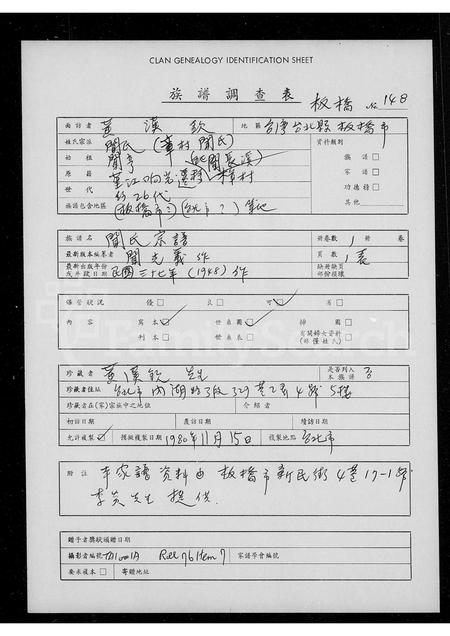 CLAN GENEALOGY IDENTIFICATION SHEET
族譜調查表 板橋 No 148
面訪者 黃漢欽 地區 台灣台北縣板橋市
姓氏宗派 閻氏 資料類別
始祖 閻亨 族譜□
原籍 遷移 家譜□
世代 約26代 功德榜□
族譜包含地區 (板橋市 等地 其他
族譜名 閻氏宗譜 冊卷數 1冊 卷
最新版本編纂者 閻光義作 頁數 1表
最新出版年份或抄錄日期 民國三十七年(1948)作 缺冊缺頁部份損壞
保管狀況 優□ 良□ 可□ 有□
內容 寫本□ 世系圖□ 排圖□
刊本□ 世系表□ 有關婦女資料(非僅姓氏)□
珍藏者 黃漢欽先生 是否列入本族譜 否
珍藏者住址 台北市內湖路3段329巷2弄4號5樓
珍藏者在(宗)家族中之地位 介紹者
初訪日期 度訪日期 續訪日期
允許複製□ 攝縮複製日期 1980年11月15日 複製地點 台北市
附注 本家譜資料由板橋市新民街4巷17-1號
李先生提供.
贈予者獎狀頒贈日期
攝影者編號 Reel 76 Item 7 家譜學會編號
要求複本□ 寄贈地址
FamilySearch